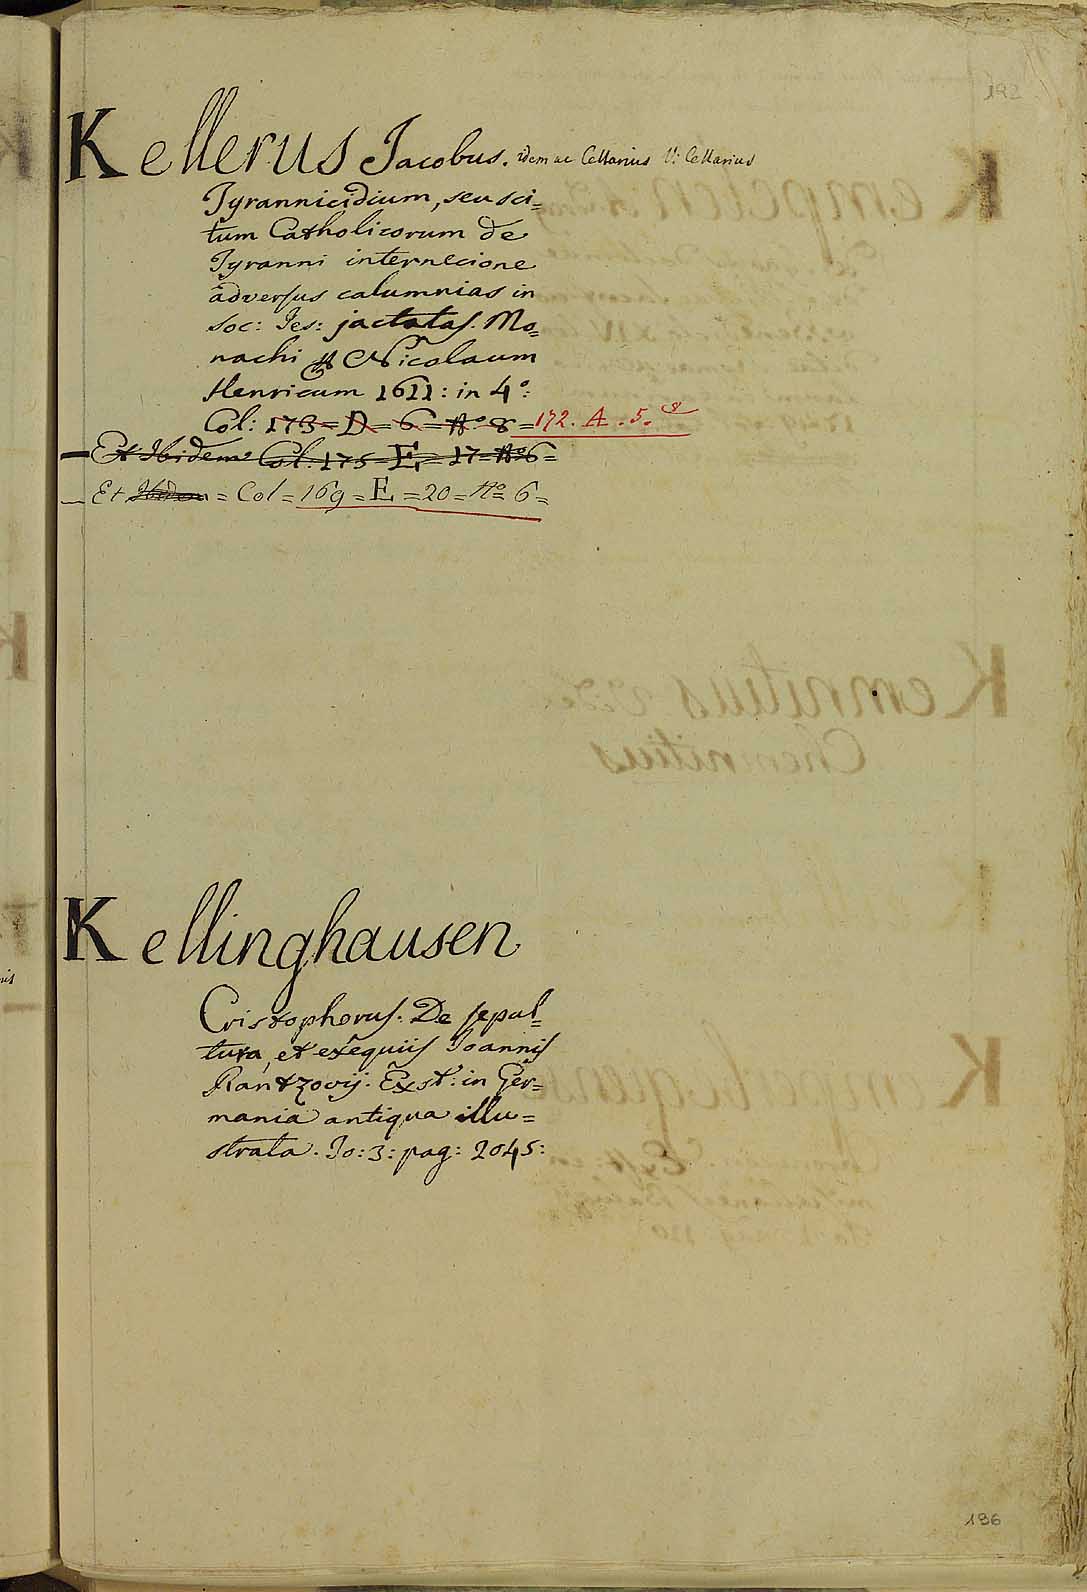 192
Kellerus Jacobus. idem ac Cellarius V: Cellarius
Tyrannicidium, seu sci=
tum Catholicorum de
Tyranni internecione
adversus calumnias in
soc: Jes: jactatas. Mo=
nachi Nicolaum
Henricum 1611: in 4º:
Col: 173=D=6=Nº 8=172. A. 5. 8
Et Ibidem Col: 175=E=17=Nº6=
Et Ibidem = Col = 169 = E = 20 = Nº 6 =
Kellinghausen
Cristophorus. De sepul=
tura, et exequiis Joannis
Rantzovij. Exst: in Ger=
mania antiqua illu=
strata. To: 3: pag: 2045:
196